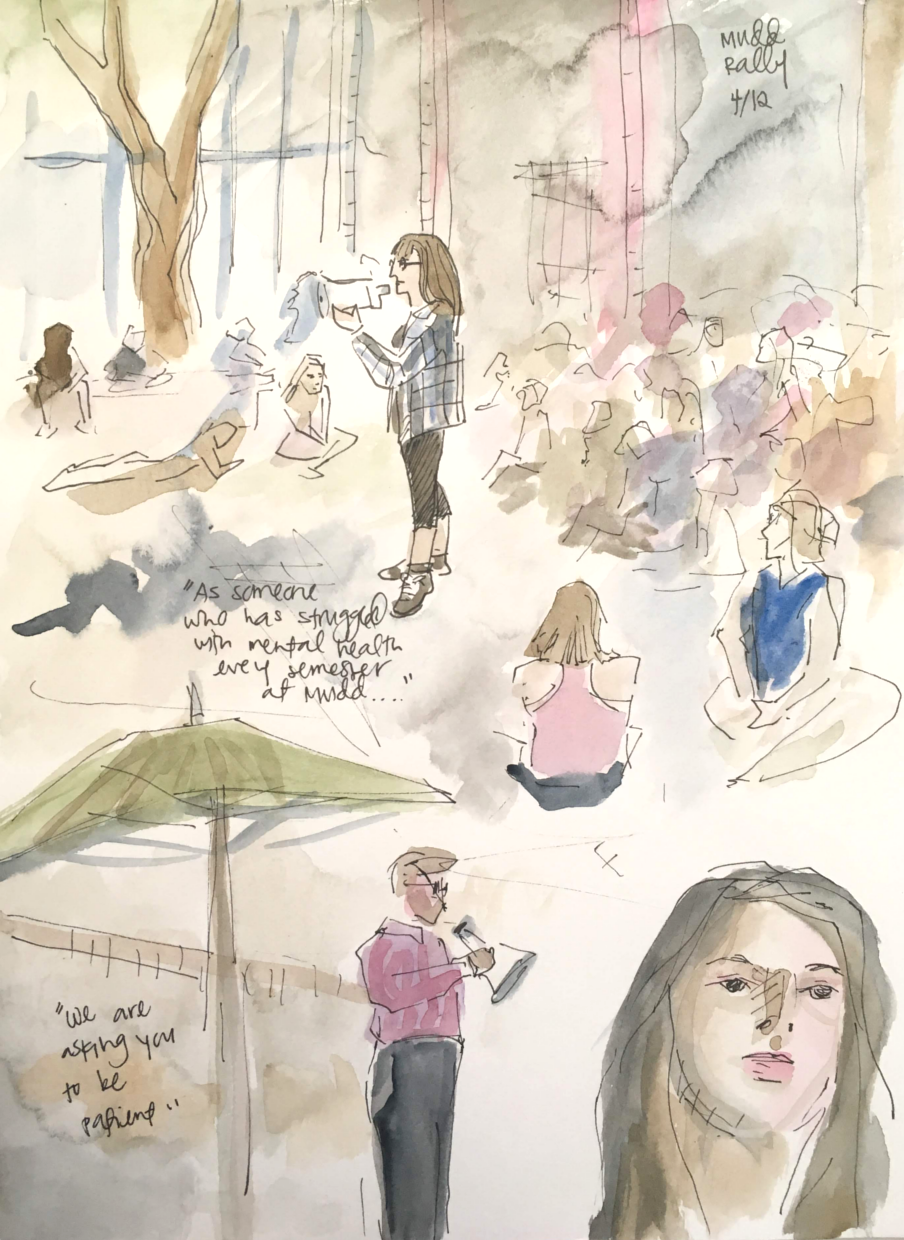 Mudd
Rally
4/12
"As someone
who has struggled
with mental health
every semester
at Mudd...."
"We are
asking you
to be
patient"